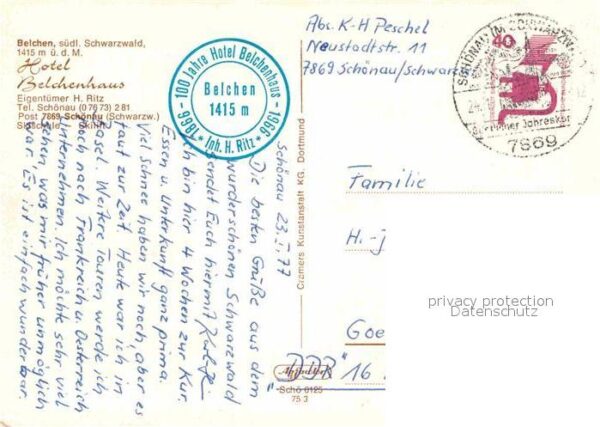 Belchen, südl. Schwarzwald,
1415 m ü. d. M.
Hotel
Belchenhaus
Eigentümer H. Ritz
Tel. Schönau (07673) 281
Post 7869 Schönau (Schwarzw.)
100 Jahre Hotel Belchenhaus
1866 1966
Belchen
1415 m
Inh. H. Ritz
Abs. K-H Peschel
Neustadtstr. 11
7869 Schönau/Schwarzw
40
SCHÖNAU IM SCHWARZW
7869
Schönau 23.I.77
Die besten Grüße aus dem
wunderschönen Schwarzwald
sendet Euch hiermit
Ich bin hier 4 Wochen zur Kur.
Essen u. Unterkunft ganz prima.
Viel Schnee haben wir noch, aber es
taut zur Zeit. Heute war ich in
Weitere Touren werde ich
noch nach Frankreich u. Österreich
unternehmen. Ich möchte sehr viel
sehen, was mir früher unmöglich
war. Es ist einfach wunderbar.
Cramers Kunstanstalt KG, Dortmund
Schö 6125
75 3
Familie
H.-J
Goe
"DDR" 16
privacy protection
Datenschutz